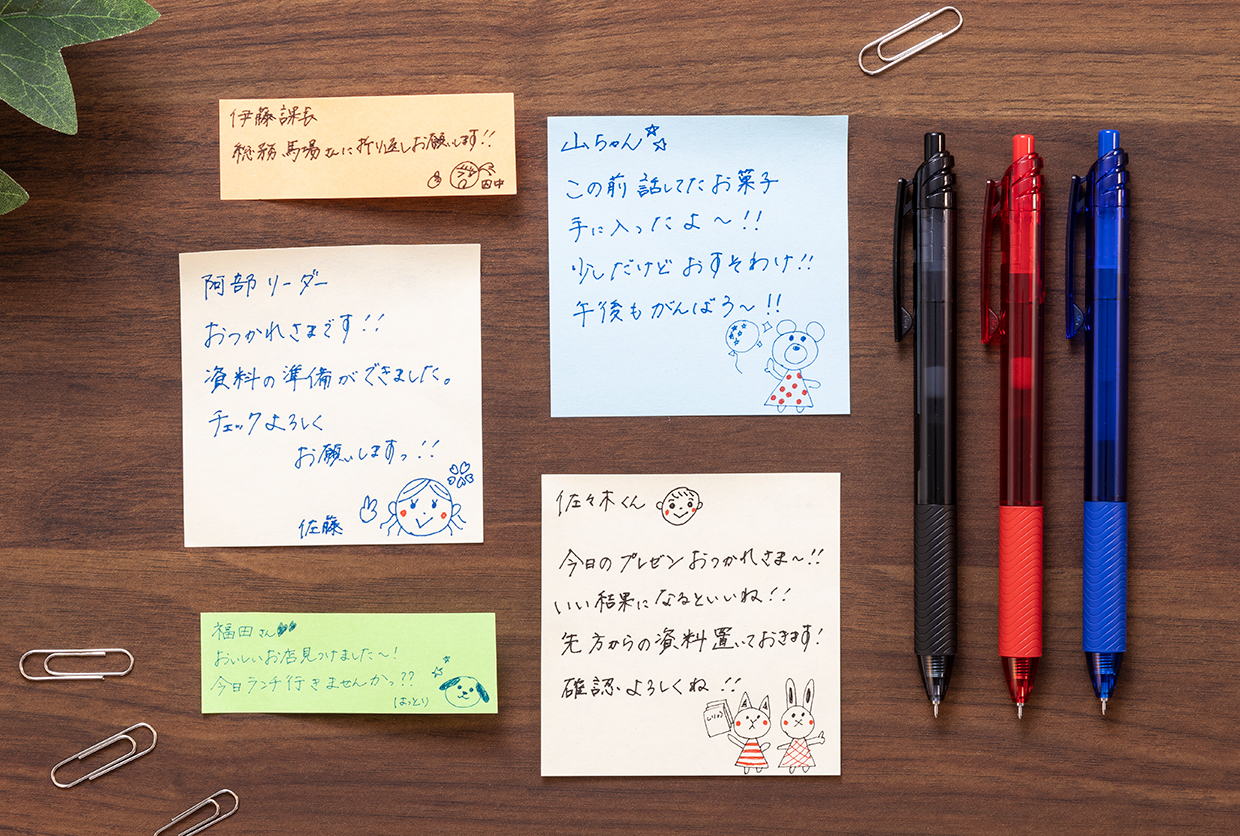 伊藤課長
総務 馬場さんに折り返しお願いします!!
田中
阿部リーダー
おつかれさまです!!
資料の準備ができました。
チェックよろしく
お願いしますっ!!
佐藤
福田さん
おいしいお店見つけました〜!
今日ランチ行きませんかっ??
はっとり
山ちゃん
この前話してたお菓子
手に入ったよ〜!!
少しだけどおすそわけ!!
午後もがんばろ〜!!
佐々木くん
今日のプレゼンおつかれさま〜!!
いい結果になるといいね!!
先方からの資料置いておきます!
確認よろしくね!!